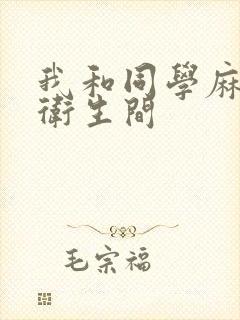 我和同學麻
衛生間
毛宗福